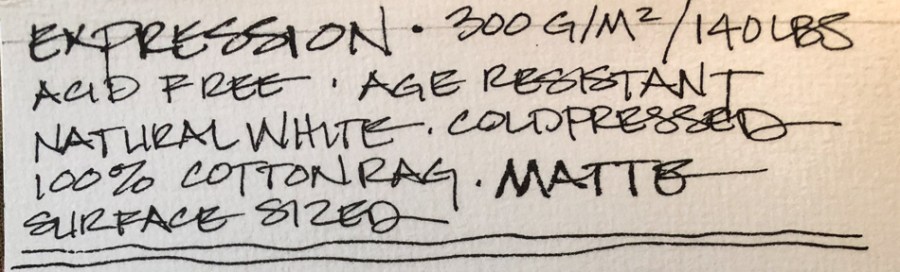 EXPRESSION · 300 G/M²/140LBS
ACID FREE · AGE RESISTANT
NATURAL WHITE · COLDPRESSED
100% COTTON RAG · MATTE
SURFACE SIZED